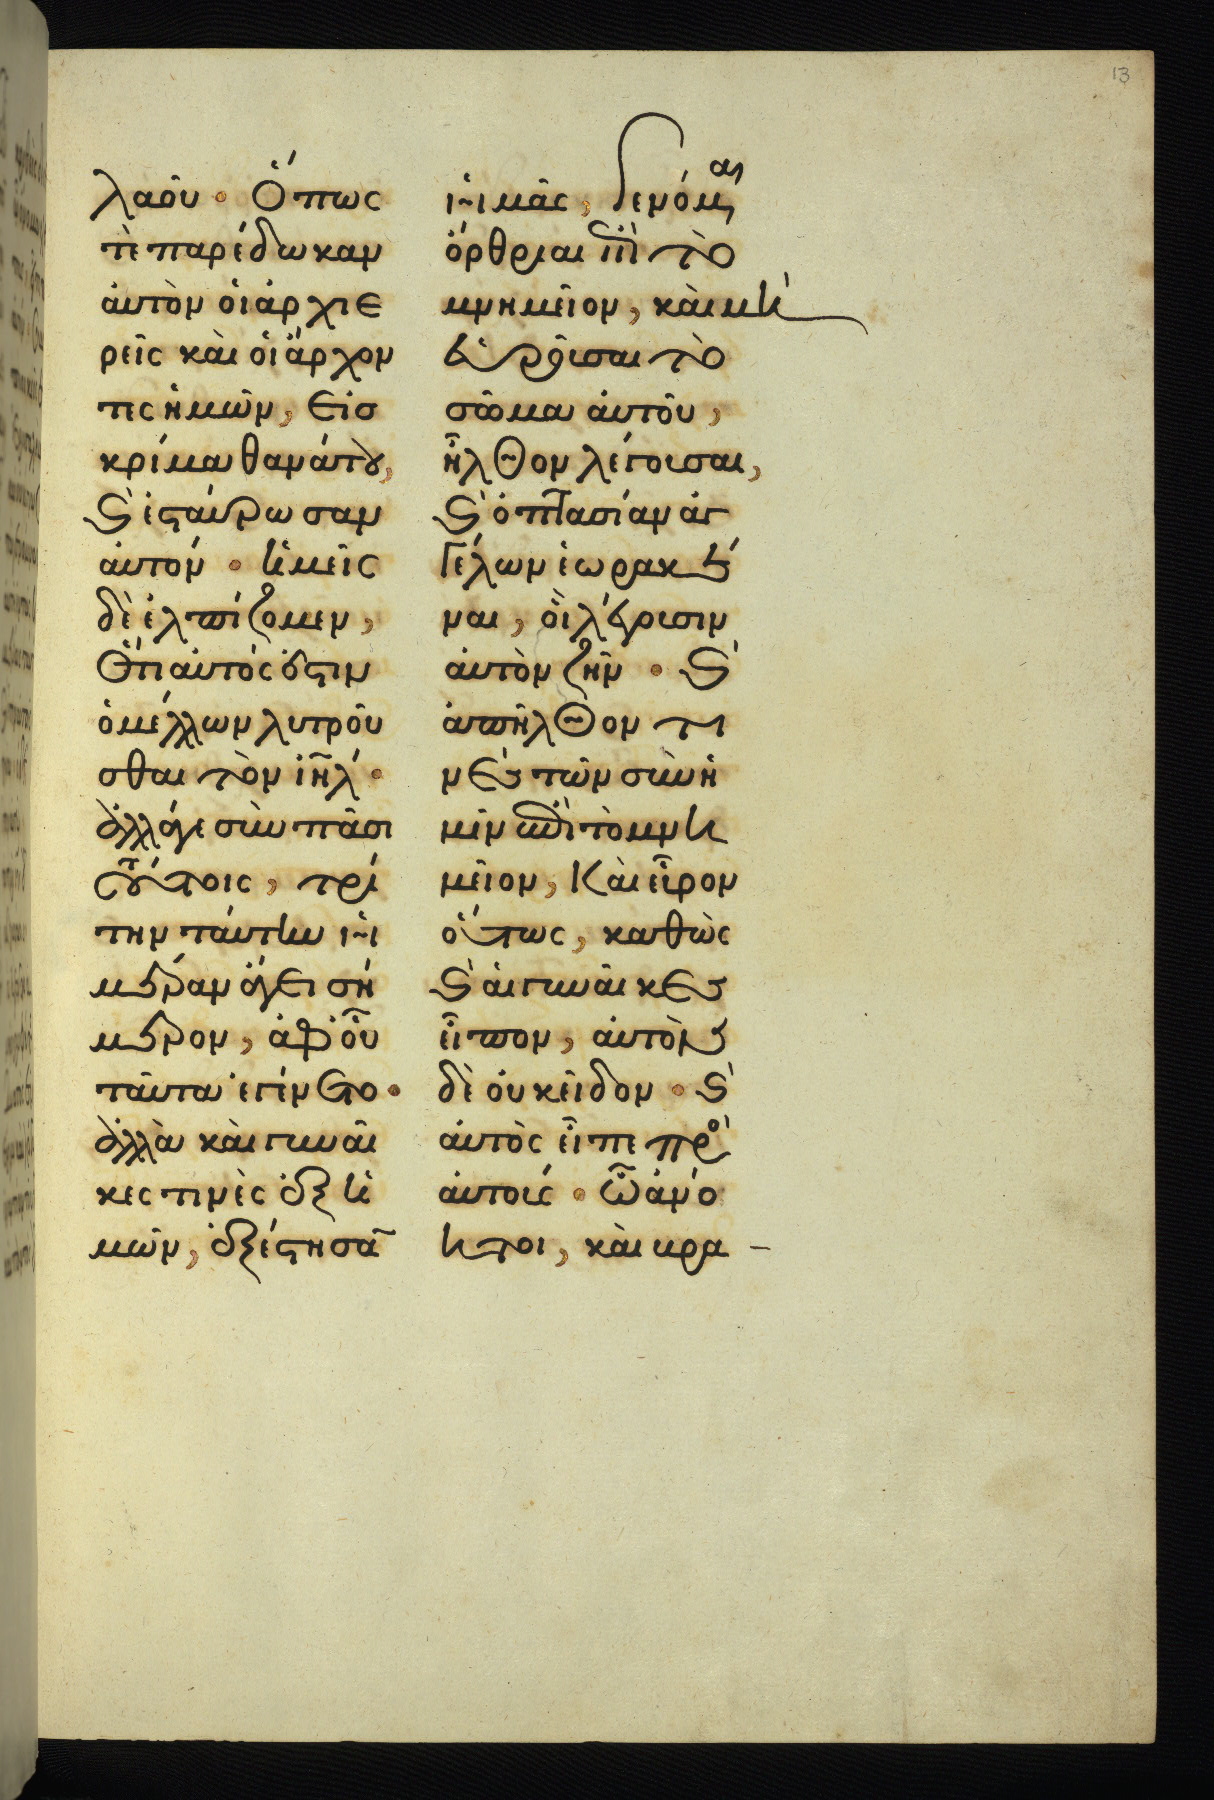 13
λαοῦ · Ὅπως
τὲ παρέδωκαν
ἀυτὸν ὁι ἀρχιε
ρεῖς καὶ ὁι ἄρχον
τες ἡμῶν, Εἰσ
κρίμα θανάτου,
καὶ ἐσταύρωσαν
ἀυτόν · ἡμεῖς
δὲ ἐλπίζομεν,
Ὅτι ἀυτός ἐστιν
ὁ μέλλων λυτροῦ
σθαι τὸν ἰῆλ ·
ἀλλάγε σὺν πᾶσι
τούτοις, τρί
την ταύτην ἡ
μέραν ἄγει σή
μερον, ἀφ οὗ
ταῦτα ἐγένετο ·
ἀλλὰ καὶ γυναῖ
κες τινὲς ἐξ ἡ
μῶν, ἐξέστησα
ἡμᾶς, γενόμεναι
ὄρθριαι ἐπὶ τὸ
μνημεῖον, καὶ μὴ
ἑυροῦσαι τὸ
σῶμα ἀυτοῦ,
ἦλθον λέγουσαι,
καὶ ὀπτασίαν ἀγ
γέλων ἑωρακέ
ναι, ὃι λέγουσιν
ἀυτὸν ζῆν · καὶ
ἀπῆλθον τι
νὲς τῶν σὺν ἡ
μῖν ἐπὶ τὸ μνη
μεῖον, Καὶ εὗρον
ὅυτως, καθὼς
καὶ ἁι γυναῖκες
εἶπον, ἀυτὸν
δὲ ὀυκ εἶδον · καὶ
ἀυτὸς εἶπε πρὸ
ἀυτούς · Ὦ ἀνό
ητοι, καὶ βρα